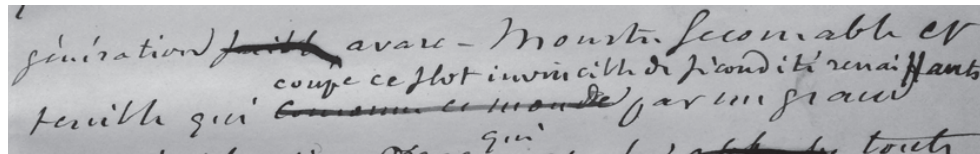 génération faible avare - Monstre secourable et
coupe ce flot invincible de fécondité renaissante
terrible qui couronne ce monde par un grand
qui
toute